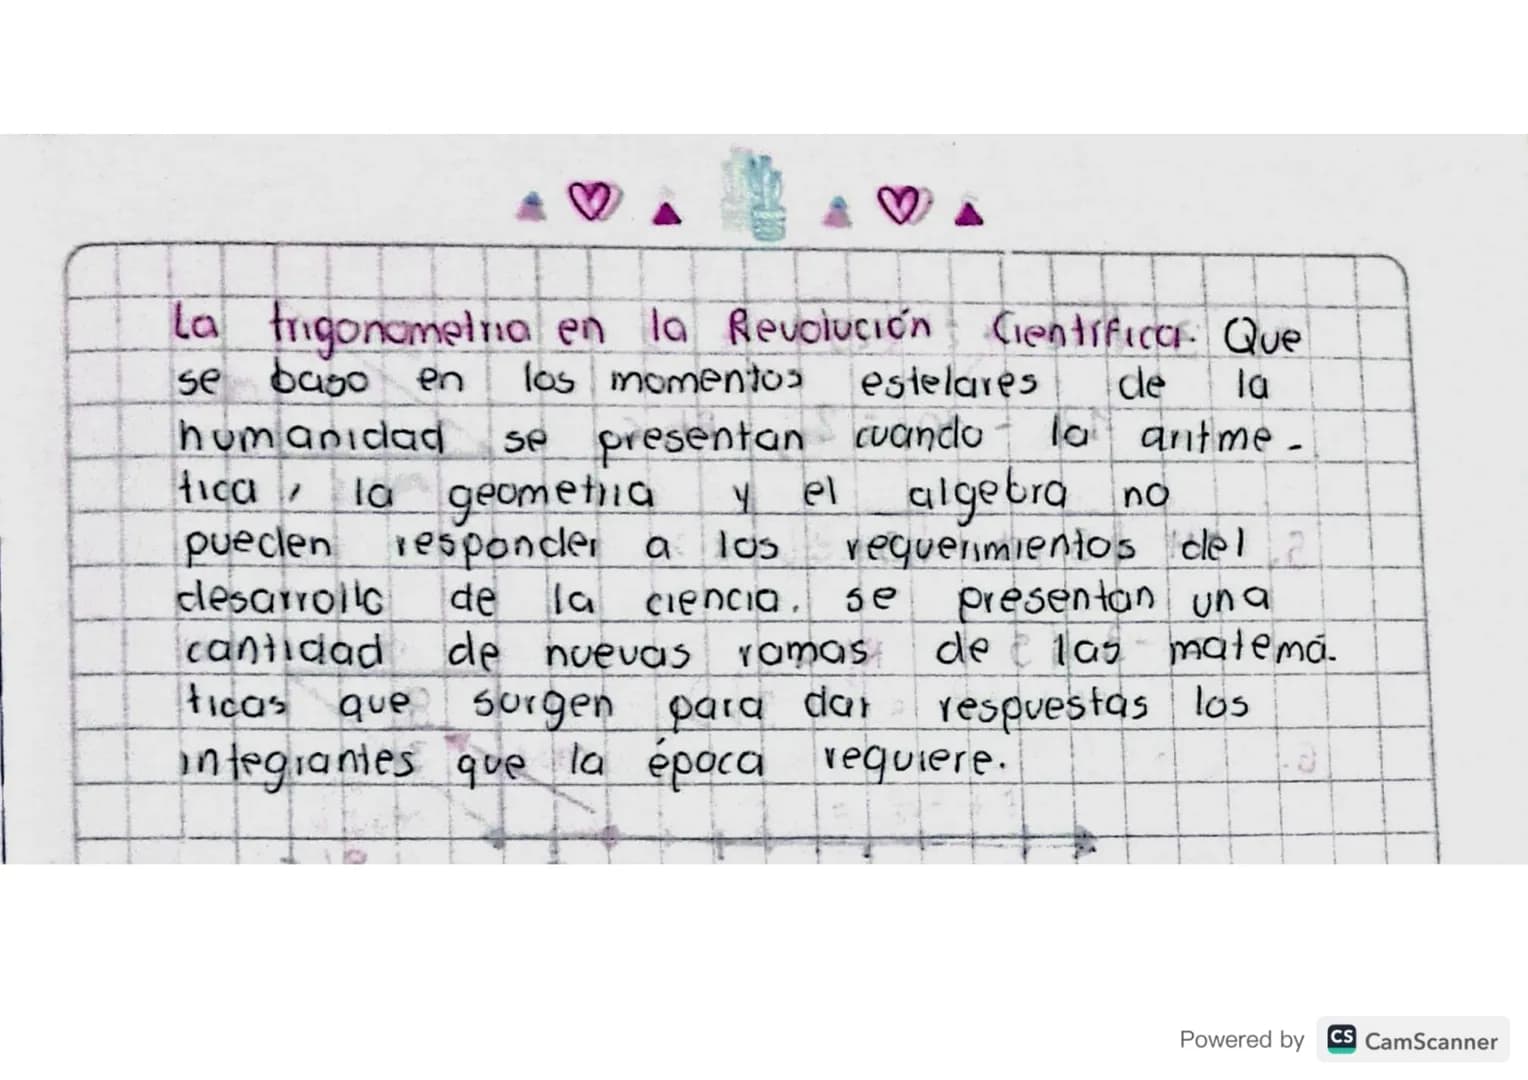 La trigonometria en la Revolución Científica. Que
se baso en los momentos estelares de la
humanidad se presentan cuando la aritme-
tica, la geometria y el algebra no
pueden responder a los requerimientos del
desarrollo de la ciencia. se presentan una
cantidad de nuevas ramas de las matemá-
ticas que surgen para dar respuestas los
integrantes que la época requiere.
Powered by CS CamScanner